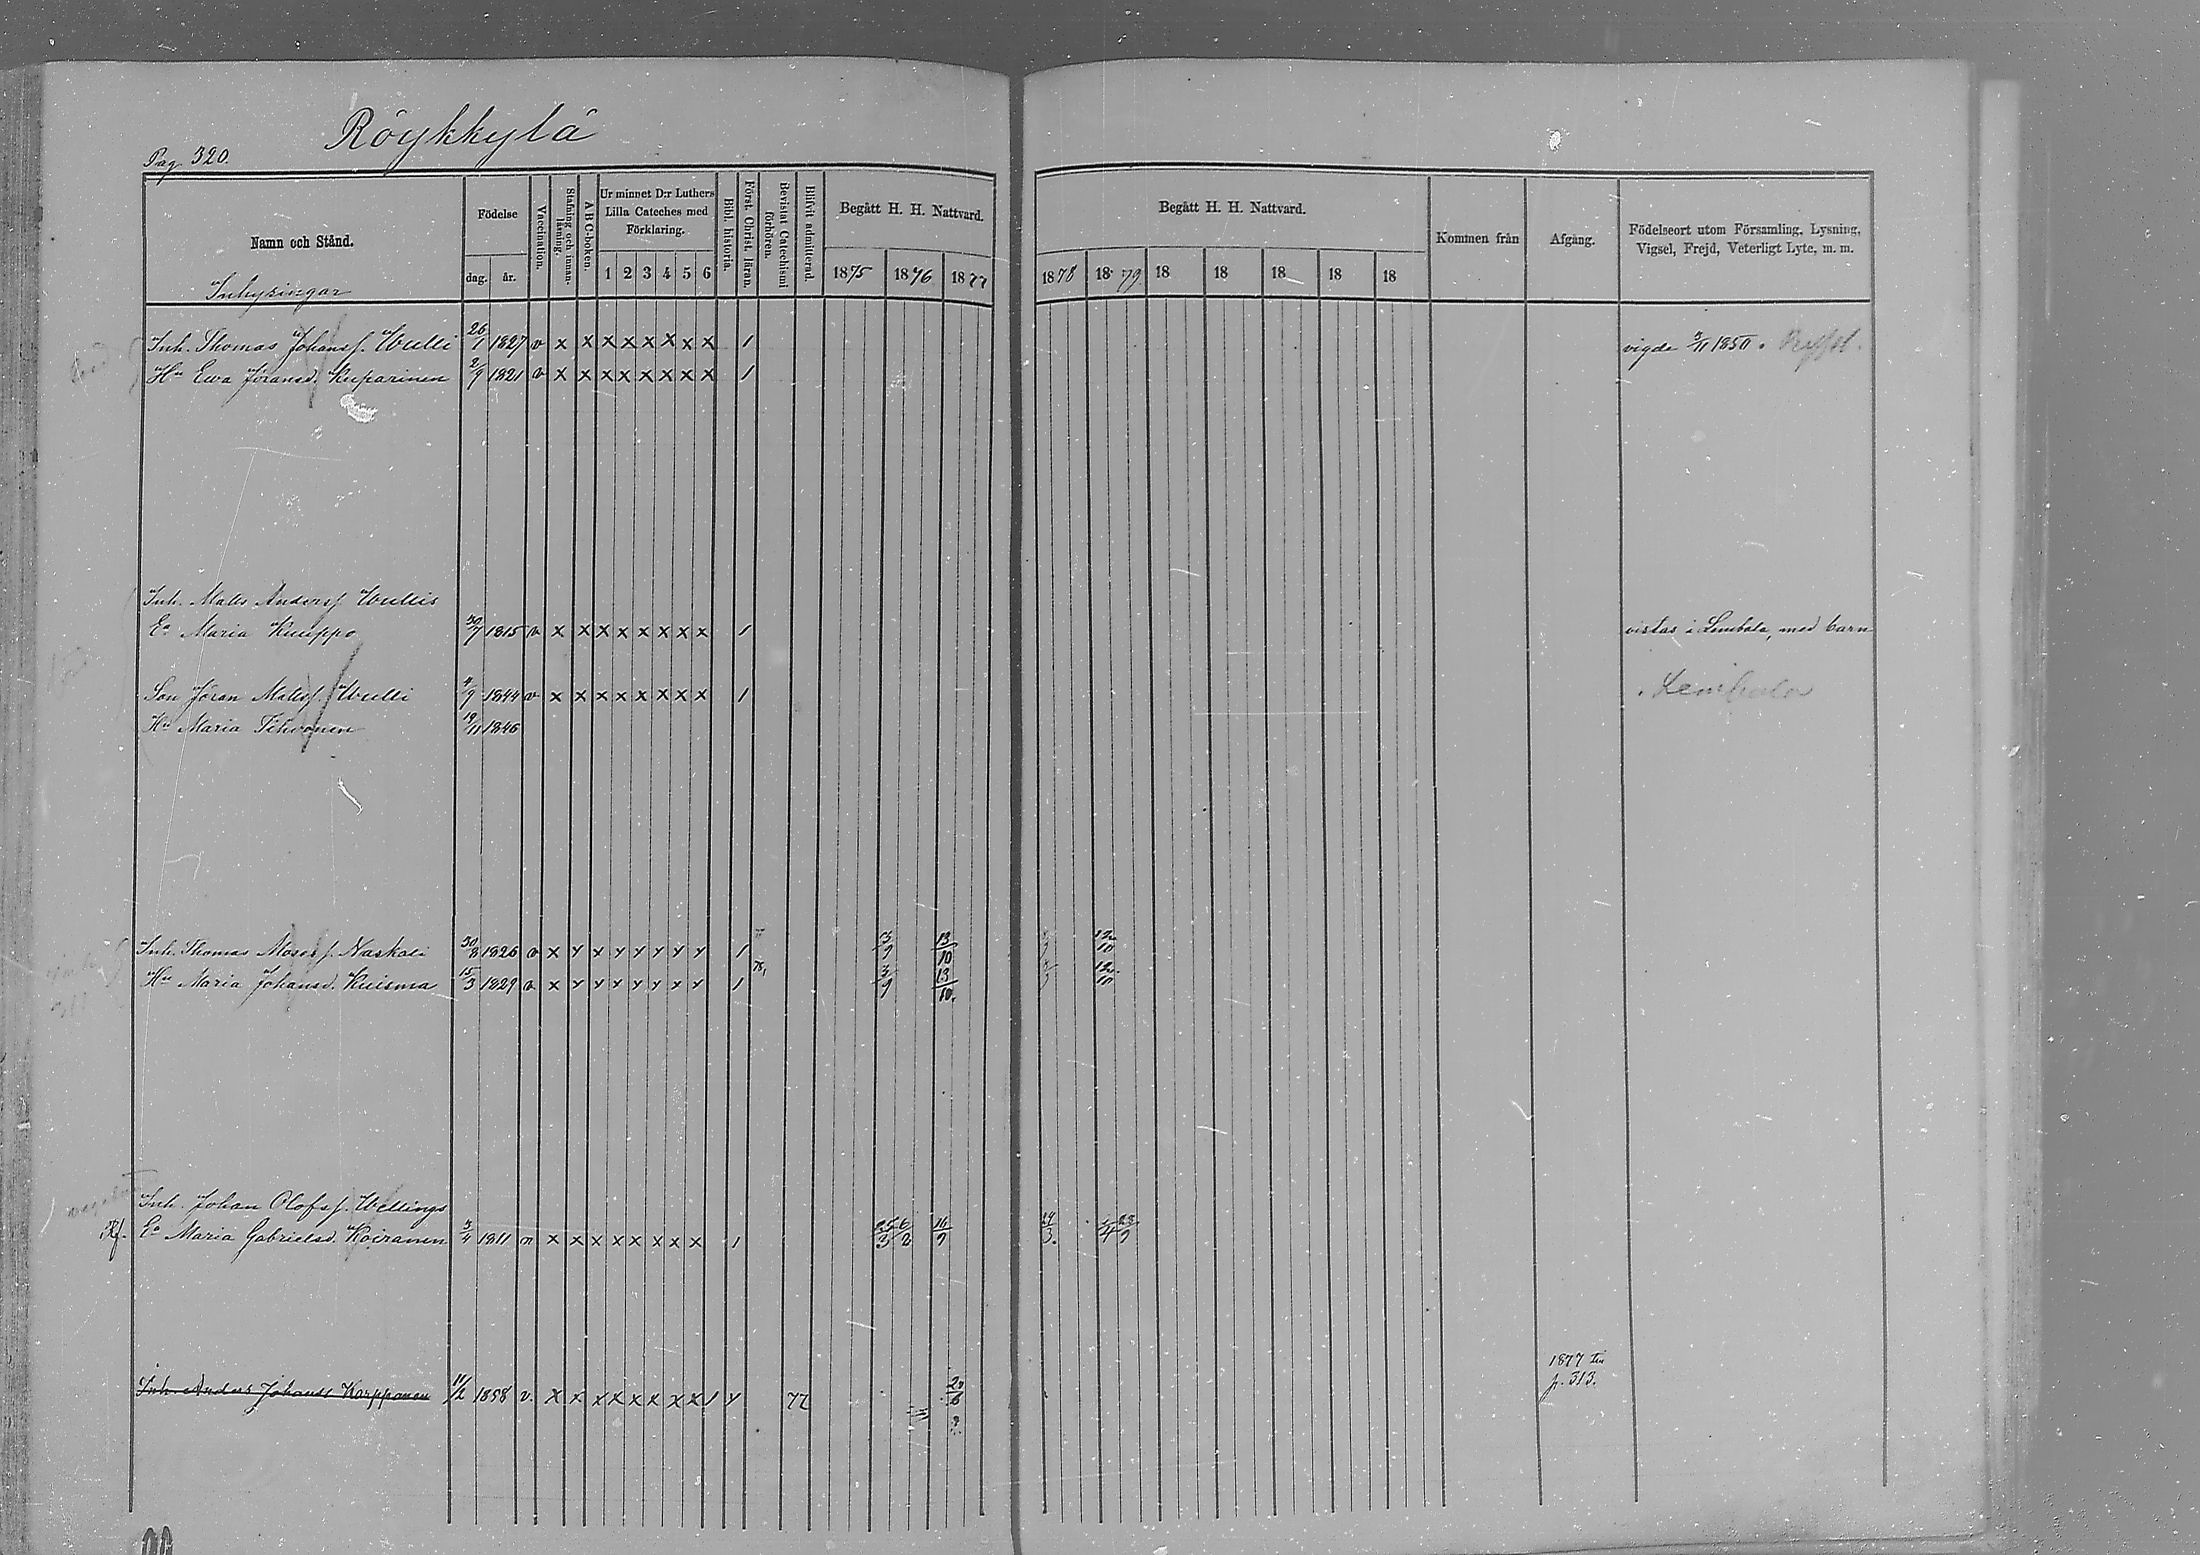 Röykkylä
Pag. 320.
Namn och Stånd.
Inhysingar
Födelse
dag. år.
Vaccination.
Stafning och innan-läsning.
A B C-boken.
Ur minnet D:r Luthers
Lilla Cateches med
Förklaring.
1 2 3 4 5 6
Bibl. historia.
Först. Christ. läran.
Bevistat Catechismi förhören.
Blifvit admitterad.
Begått H. H. Nattvard.
1875 1876 1877
Begått H. H. Nattvard.
1878 1879 18 18 18 18 18
Kommen från
Afgång.
Födelseort utom Församling, Lysning,
Vigsel, Frejd, Veterligt Lyte, m. m.
Inh. Thomas Johanss. Wulli 26/1 1827 v x x x x x x x x 1 vigde 3/11 1850.
Hu Ewa Jöransd. Kuparinen 2/9 1821 v x x x x x x x x 1
Inh. Matts Anderss. Wullis
Ea Maria Kuuppo 30/7 1815 v x x x x x x x x 1 vistas i Lembala, med barn
Son Jöran Mattss. Wulli 4/9 1844 v x x x x x x x x 1 Lembala
Hu Maria Tihvonen 19/11 1846
Inh. Thomas Mosess. Naskali 30/8 1826 v x x x x x x x x 1 3/9 13/10 12/10
Hu Maria Johansd. Kuisma 15/3 1829 v x x x x x x x x 1 3/9 13/10. 12/10
Inh. Johan Olofss. Wellings
Ea Maria Gabrielsd. Koiranen 3/4 1811 n x x x x x x x x 1 25/3 6/2 16/9 24/3. 23/9
Inh. Anders Johanss Karpponen 11/2 1858 v. x x x x x x x x 1 x 77 20/6
1877 till
p. 313.